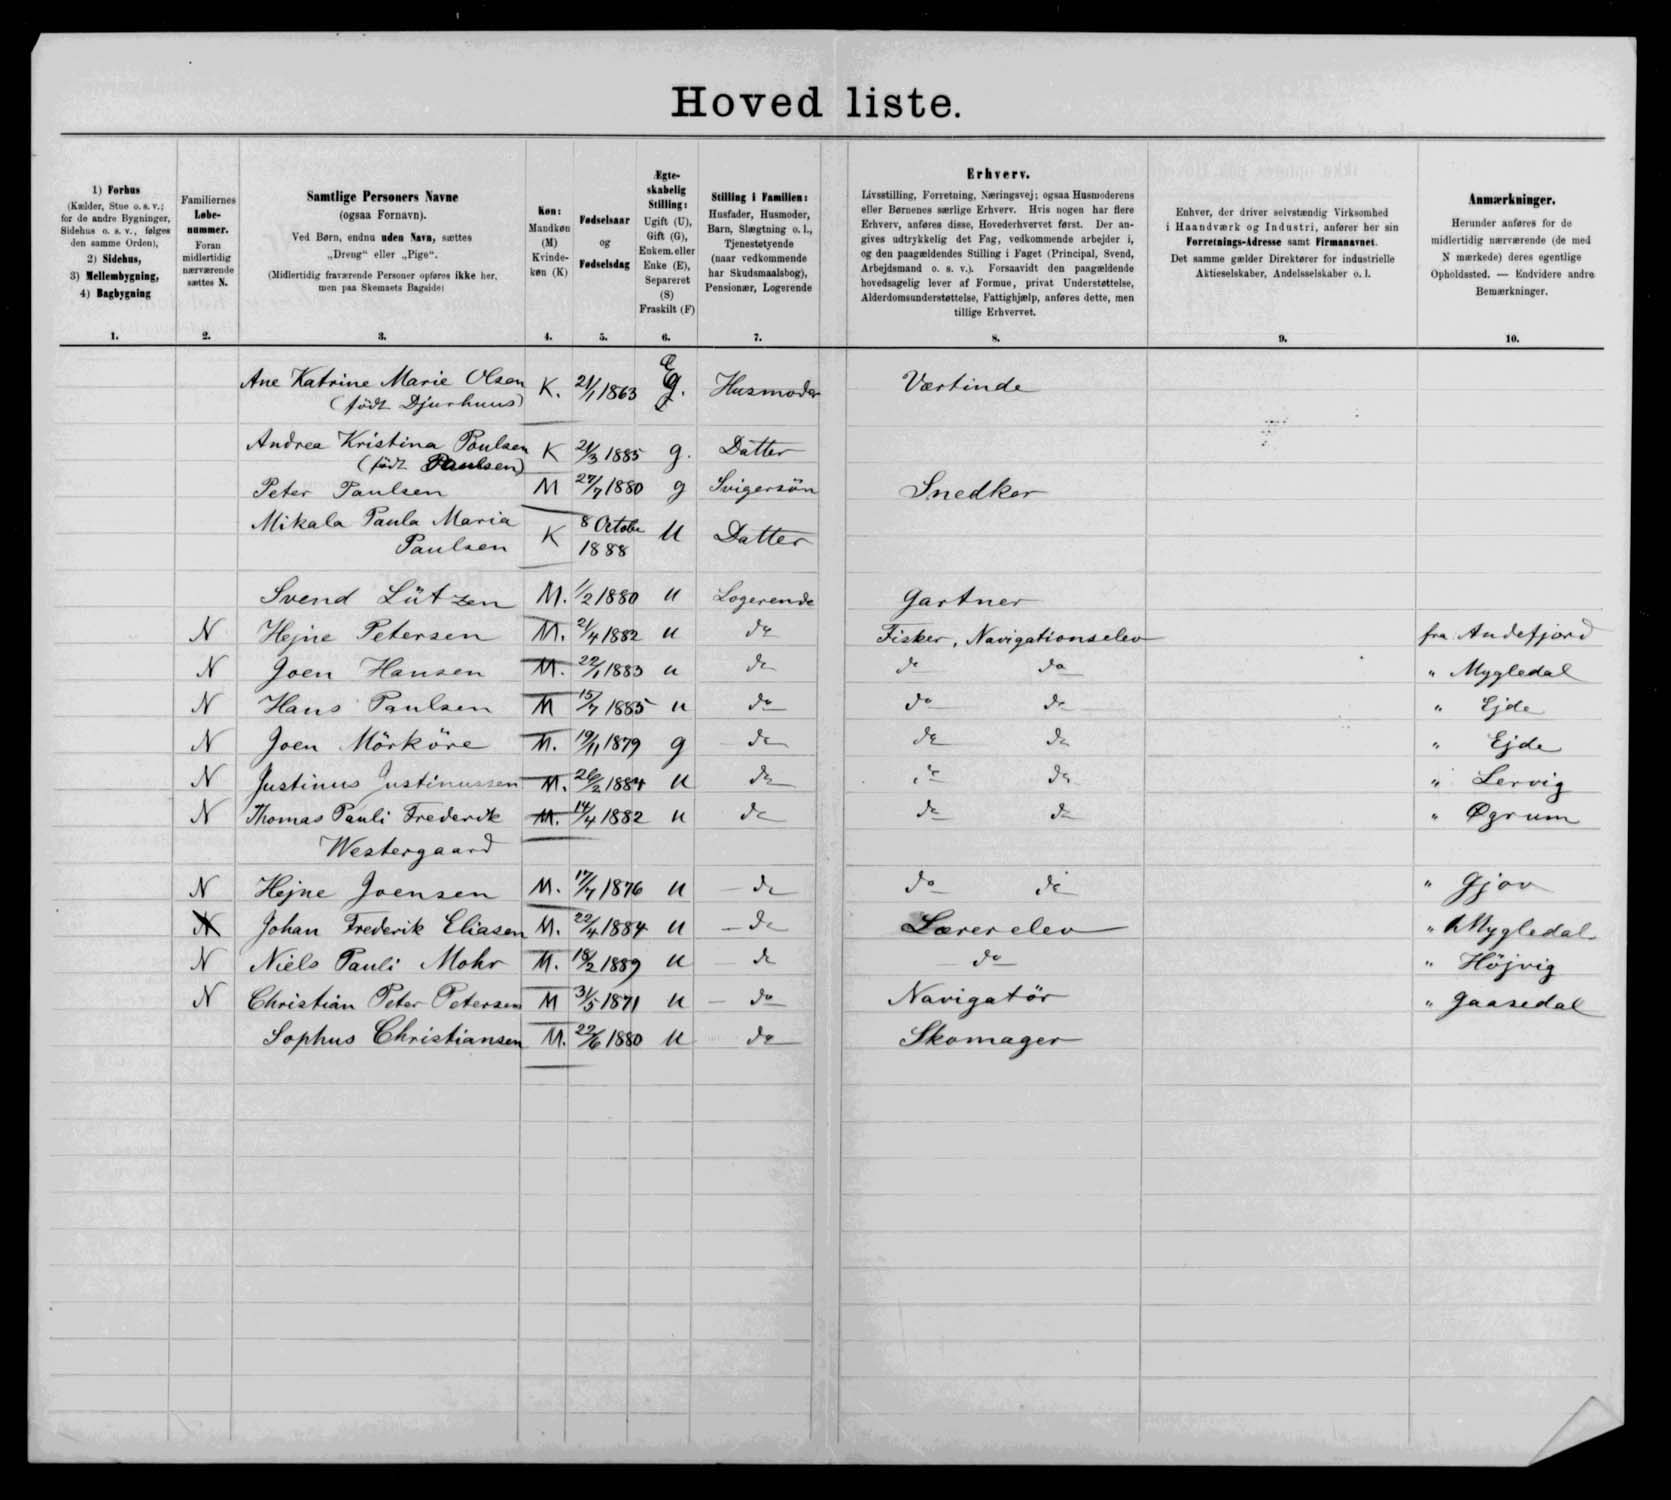 Hovedliste.
1) Forhus
(Kælder, Stue o. s. v.;
for de andre Bygninger,
Sidehus o. s. v., følges
den samme Orden),
2) Sidehus,
3) Mellembygning,
4) Bagbygning
Familiernes
Løbe-
nummer.
Foran
midlertidig
nærværende
sættes N.
Samtlige Personers Navne
(ogsaa Fornavn).
Ved Børn, endnu uden Navn, sættes
„Dreng" eller „Pige".
(Midlertidig fraværende Personer opføres ikke her,
men paa Skemaets Bagside)
Køn:
Mandkøn
(M)
Kvinde-
køn (K)
Fødselsaar
og
Fødselsdag
Ægte-
skabelig
Stilling:
Ugift (U),
Gift (G),
Enkem. eller
Enke (E),
Separeret
(S)
Fraskilt (F)
Stilling i Familien:
Husfader, Husmoder,
Barn, Slægtning o. l.,
Tjenestetyende
(naar vedkommende
har Skudsmaalsbog),
Pensionær, Logerende
Erhverv.
Livsstilling, Forretning, Næringsvej; ogsaa Husmoderens
eller Børnenes særlige Erhverv. Hvis nogen har flere
Erhverv, anføres disse, Hovederhvervet først. Der an-
gives udtrykkelig det Fag, vedkommende arbejder i,
og den paagældendes Stilling i Faget (Principal, Svend,
Arbejdsmand o. s. v.). Forsaavidt den paagældende
hovedsagelig lever af Formue, privat Understøttelse,
Alderdomsunderstøttelse, Fattighjælp, anføres dette, men
tillige Erhvervet.
Enhver, der driver selvstændig Virksomhed
i Haandværk og Industri, anfører her sin
Forretnings-Adresse samt Firmanavnet.
Det samme gælder Direktører for industrielle
Aktieselskaber, Andelsselskaber o. l.
Anmærkninger.
Herunder anføres for de
midlertidig nærværende (de med
N mærkede) deres egentlige
Opholdssted. — Endvidere andre
Bemærkninger.
1. 2. 3. 4. 5. 6. 7. 8. 9. 10.
Ane Katrine Marie Olsen K. 21/1 1863 E Husmoder Værtinde
(födt Djurhuus)
Andrea Kristina Poulsen K 21/3 1885 g. Datter
(födt Paulsen)
Peter Paulsen M 27/7 1880 g Svigersön Snedker
Mikala Paula Maria K 8 Octobe U Datter
Paulsen 1888
Svend Lützen M. 1/2 1880 u Logerende Gartner
N Hejne Petersen M. 21/4 1882 u do Fisker, Navigationselev fra Andefjord
N Joen Hansen M. 22/1 1883 u do do do " Mygledal
N Hans Paulsen M 15/7 1885 u do do do " Ejde
N Joen Mörköre M. 19/11 1879 g do do do " Ejde
N Justinus Justinussen M. 26/2 1884 u do do do " Lervig
N Thomas Pauli Frederik M. 14/4 1882 u do do do " Øgrum
Westergaard
N Hejne Joensen M. 17/7 1876 u do do do " Gjov
N Johan Frederik Eliasen M. 22/4 1884 u do Lærerelev " Mygledal
N Niels Pauli Mohr M. 18/2 1889 u do do " Höjvig
N Christian Peter Petersen M 31/5 1871 u do Navigatör " Gaasedal
Sophus Christiansen M. 22/6 1880 u do Skomager